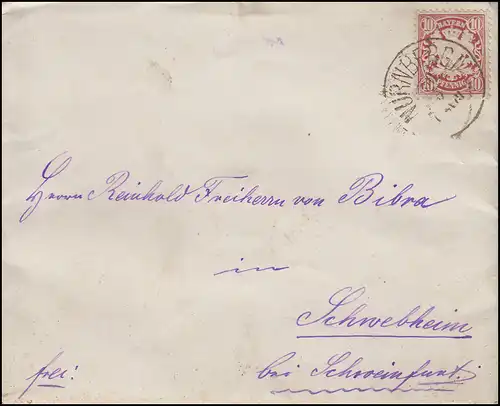 10 BAYERN 10
10 PFENNIG 10
NÜRNBERG
Herrn Reinhold Freiherrn von Bibra
in
Schwebheim
frei: bei Schweinfurt.